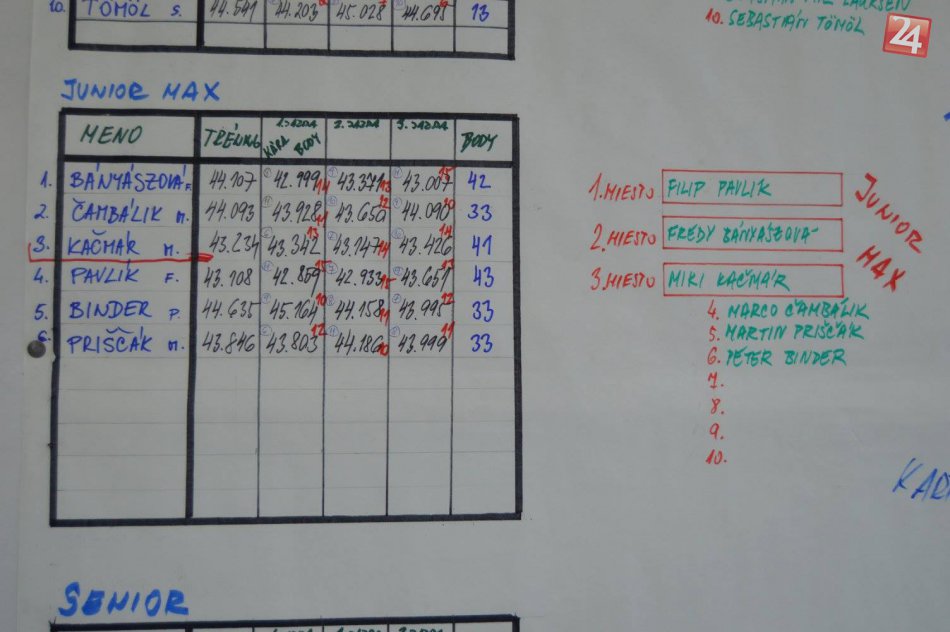 10. TÖMÖL S. 44.541 44.203 45.028 44.695 13
10. SEBASTIÁN TÖMÖL
24
JUNIOR MAX
MENO TRÉNING 1. JAZDA KÁRA BODY 2. JAZDA 3. JAZDA BODY
1. BÁNYÁSZOVÁ F. 44.107 42.999 14 43.371 13 43.007 15 42
2. ČAMBÁLIK M. 44.093 43.928 11 43.650 12 44.090 10 33
3. KAČMÁR M. 43.234 43.342 13 43.147 14 43.426 14 41
4. PAVLIK F. 43.108 42.859 15 42.933 15 43.651 13 43
5. BINDER P. 44.635 45.164 10 44.158 11 43.995 12 33
6. PRIŠČÁK M. 43.846 43.803 12 44.186 10 43.999 11 33
1. MIESTO FILIP PAVLÍK
2. MIESTO FREDY BÁNYÁSZOVÁ
3. MIESTO MIKI KAČMÁR
JUNIOR MAX
4. MARCO ČAMBÁLIK
5. MARTIN PRIŠČÁK
6. PÉTER BINDER
7.
8.
9.
10.
SENIOR